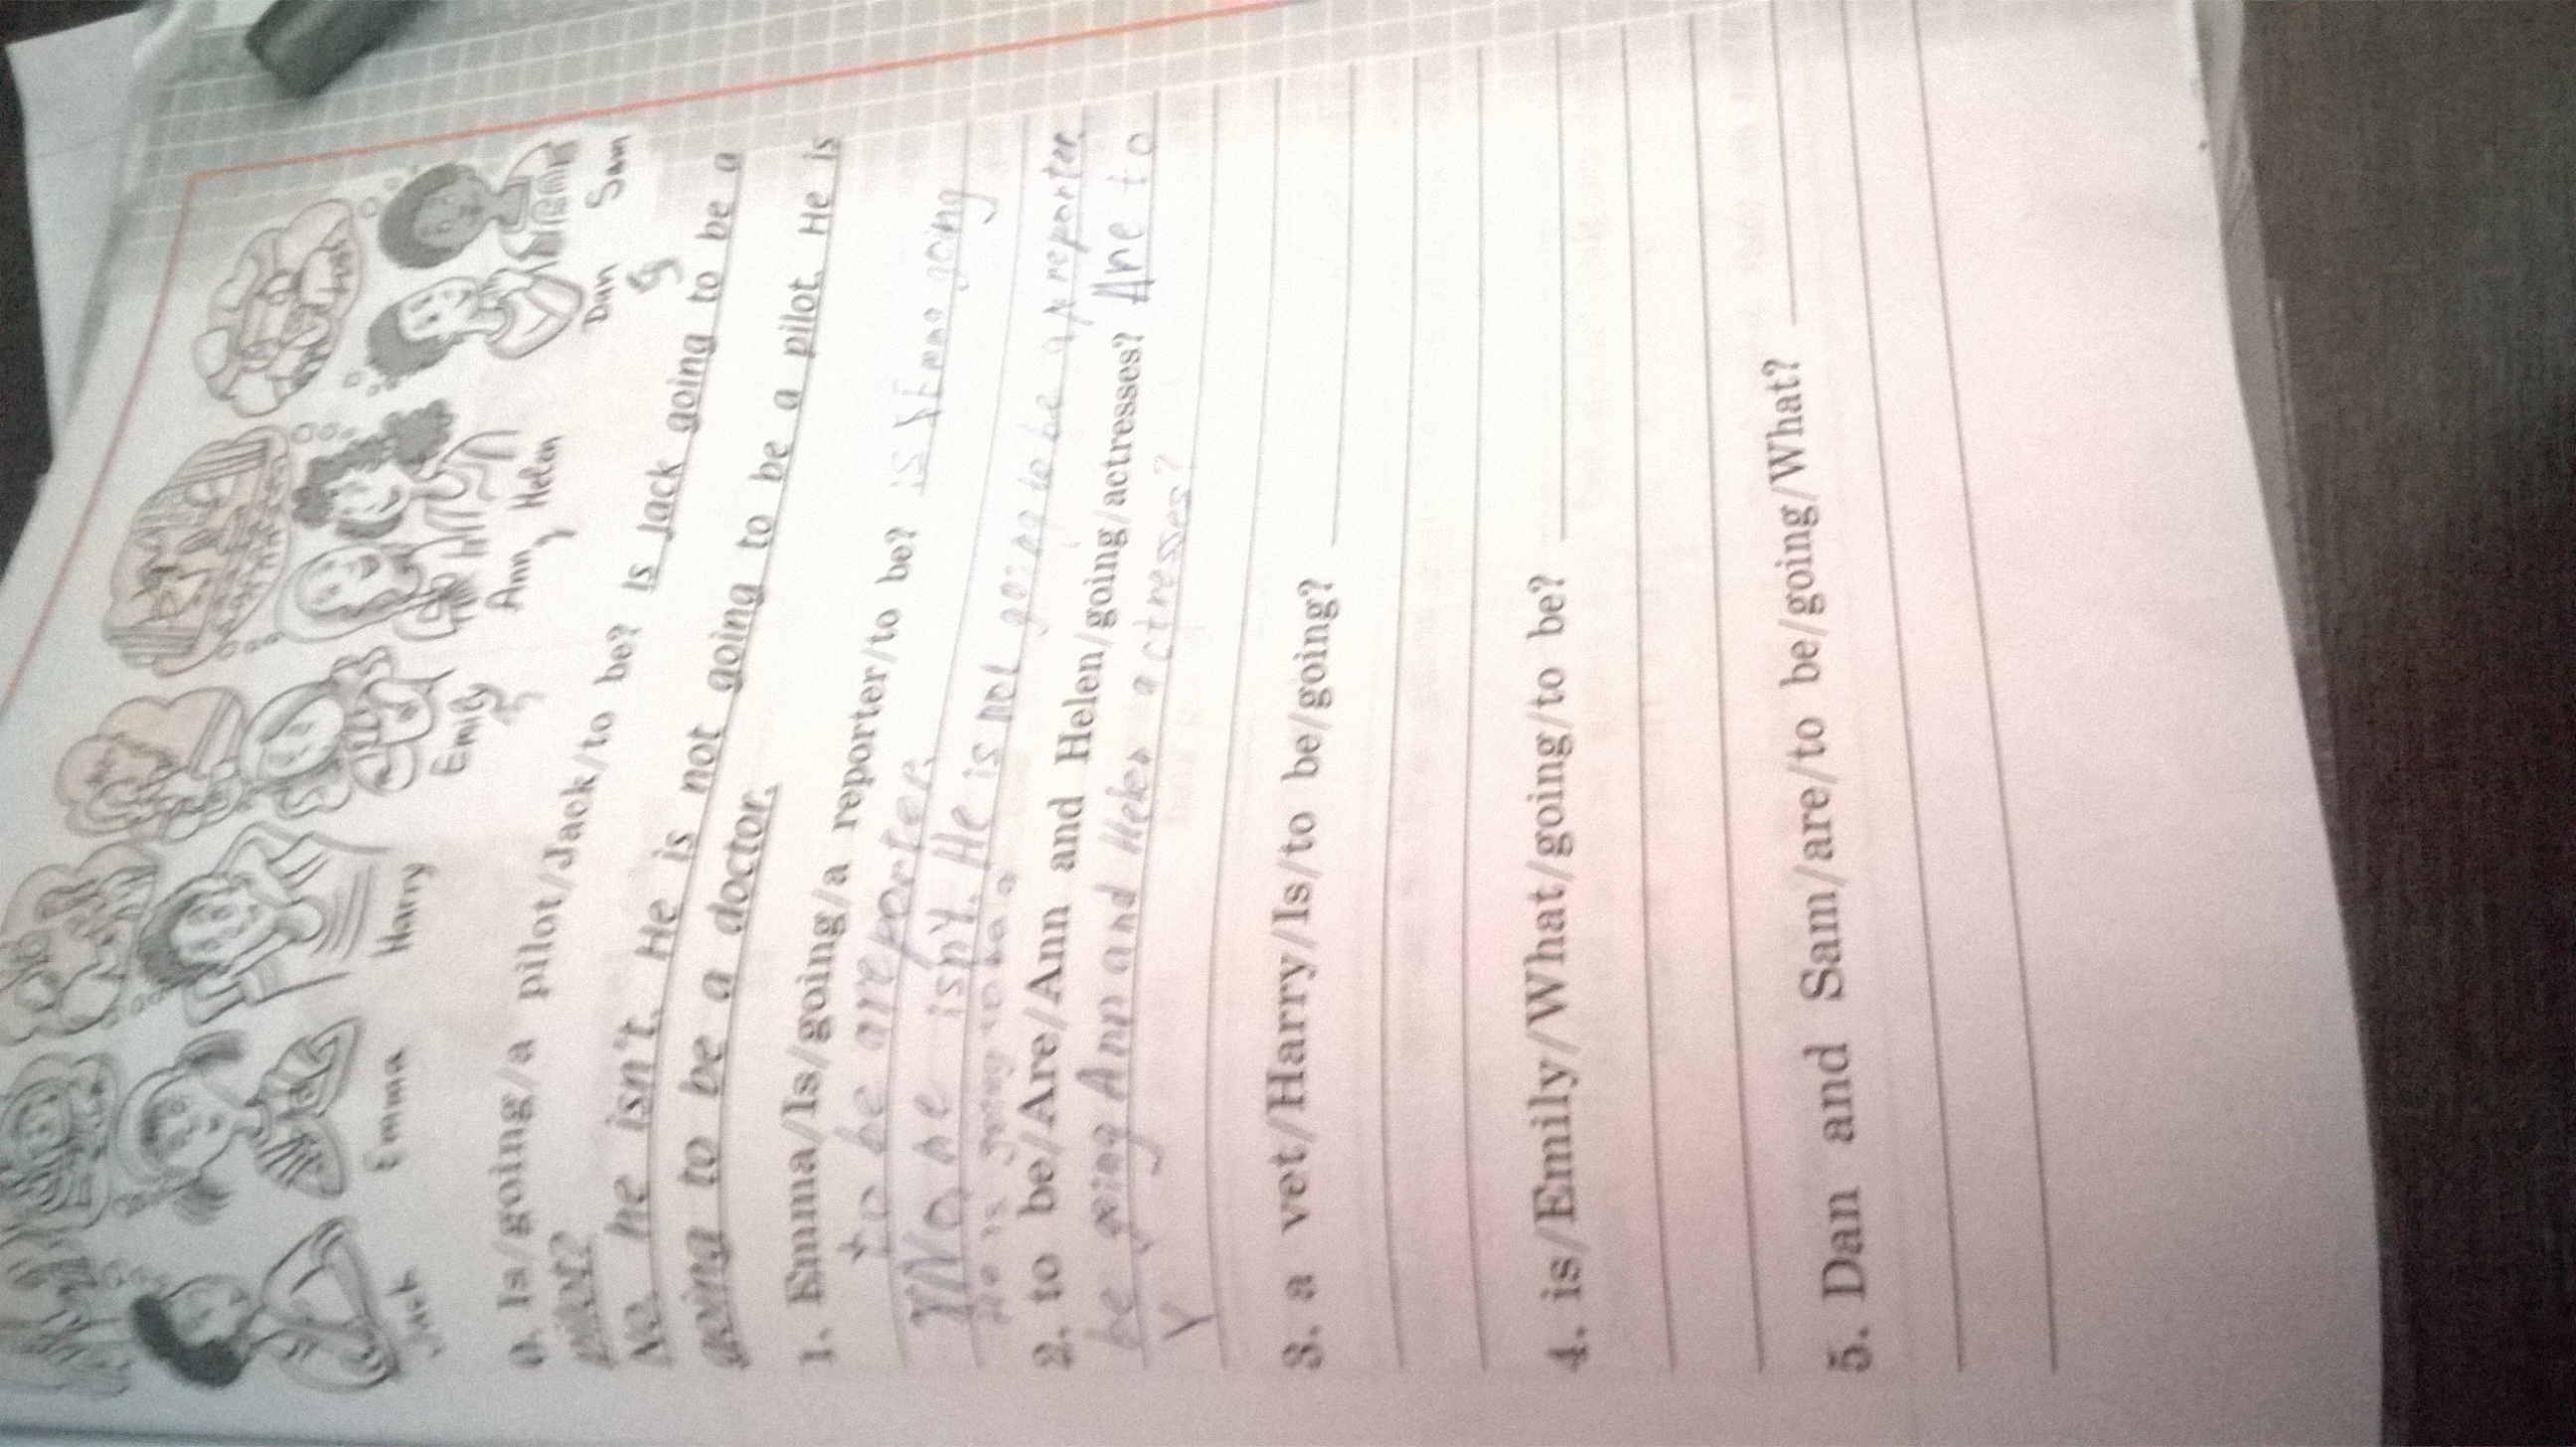 Jack Emma Harry Emily Ann Helen Dan Sam
0. Is/going/a pilot/Jack/to be? Is Jack going to be a
pilot?
No he isn't. He is not going to be a pilot. He is
going to be a doctor.
1. Emma/Is/going/a reporter/to be? is Emma going
to be a reporter
No he isn't. He is not going to be a reporter.
He is going to be a
2. to be/Are/Ann and Helen/going/actresses? Are to
be going Ann and Helen actresses?
Y
3. a vet/Harry/Is/to be/going?
4. is/Emily/What/going/to be?
5. Dan and Sam/are/to be/going/What?